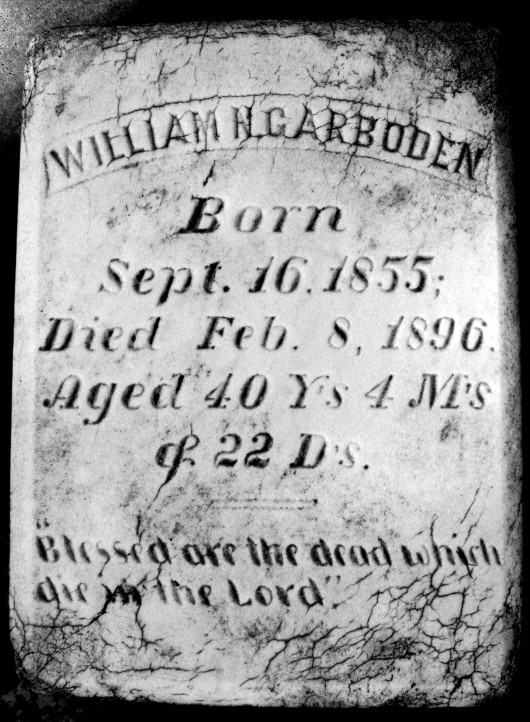 WILLIAM N. GARBODEN
Born
Sept. 16. 1855;
Died Feb. 8, 1896.
Aged 40 Ys 4 M's
& 22 D's.
"Blessed are the dead which
die in the Lord".